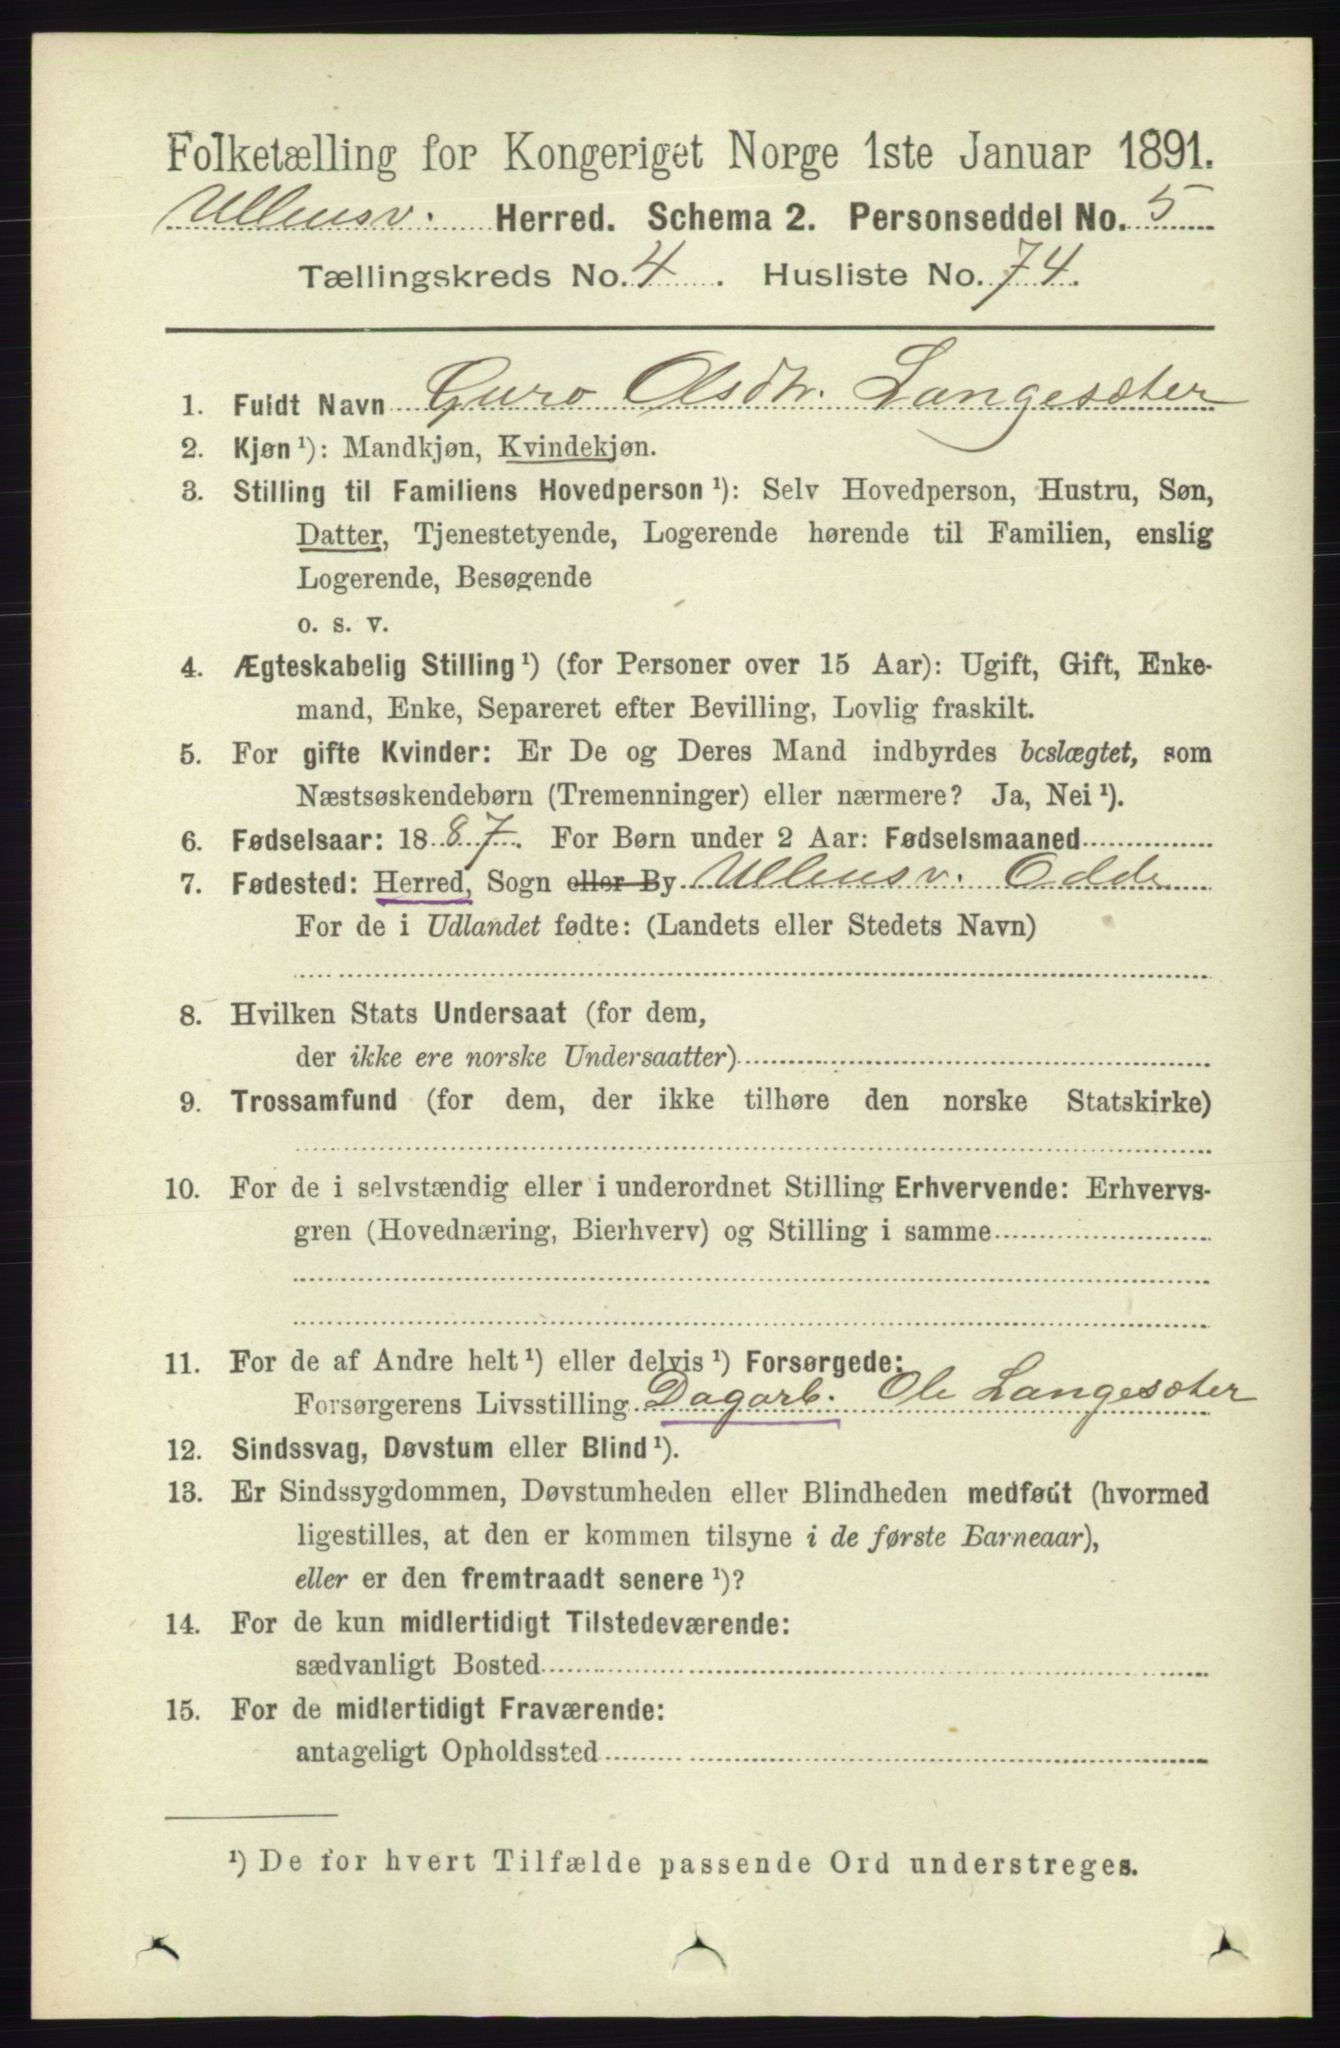 Folketælling for Kongeriget Norge 1ste Januar 1891.
Ullensv. Herred. Schema 2. Personseddel No. 5
Tællingskreds No. 4. Husliste No. 74.
1. Fuldt Navn Guro Olsdtr. Langesæter
2. Kjøn ¹): Mandkjøn, Kvindekjøn.
3. Stilling til Familiens Hovedperson ¹): Selv Hovedperson, Hustru, Søn,
Datter, Tjenestetyende, Logerende hørende til Familien, enslig
Logerende, Besøgende
o. s. v.
4. Ægteskabelig Stilling ¹) (for Personer over 15 Aar): Ugift, Gift, Enke-
mand, Enke, Separeret efter Bevilling, Lovlig fraskilt.
5. For gifte Kvinder: Er De og Deres Mand indbyrdes beslægtet, som
Næstsøskendebørn (Tremenninger) eller nærmere? Ja, Nei ¹).
6. Fødselsaar: 1887. For Børn under 2 Aar: Fødselsmaaned
7. Fødested: Herred, Sogn eller By Ullensv. Odde
For de i Udlandet fødte: (Landets eller Stedets Navn)
8. Hvilken Stats Undersaat (for dem,
der ikke ere norske Undersaatter)
9. Trossamfund (for dem, der ikke tilhøre den norske Statskirke)
10. For de i selvstændig eller i underordnet Stilling Erhvervende: Erhvervs-
gren (Hovednæring, Bierhverv) og Stilling i samme
11. For de af Andre helt ¹) eller delvis ¹) Forsørgede:
Forsørgerens Livsstilling Dagarb. Ole Langesæter
12. Sindssvag, Døvstum eller Blind ¹).
13. Er Sindssygdommen, Døvstumheden eller Blindheden medfødt (hvormed
ligestilles, at den er kommen tilsyne i de første Barneaar),
eller er den fremtraadt senere ¹)?
14. For de kun midlertidigt Tilstedeværende:
sædvanligt Bosted
15. For de midlertidigt Fraværende:
antageligt Opholdssted
¹) De for hvert Tilfælde passende Ord understreges.